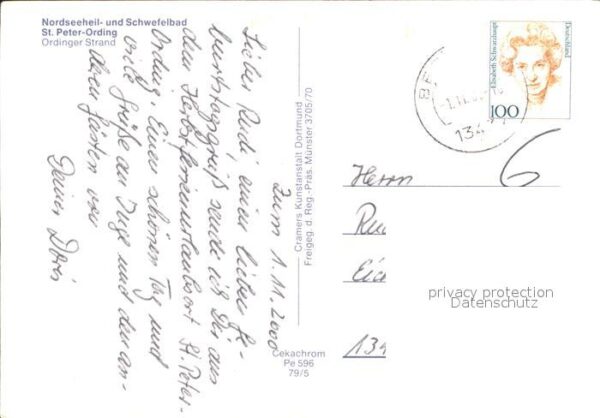 Nordseeheil- und Schwefelbad
St. Peter-Ording
Ordinger Strand
Zum 1.11.2000
Lieber Rudi, einen lieben Ge-
burtstagsgruß sende ich Dir aus
dem Herbstferienurlaubsort St. Peter-
Ording. Einen schönen Tag und
viele Grüße an Inge und den an-
deren Gästen von
Deiner Doris
Cramers Kunstanstalt Dortmund
Freigeg. d. Reg.-Präs. Münster 3705/70
Cekachrom
Pe 596
79/5
Elisabeth Schwarzhaupt
Deutschland
100
BE
134
6
Herrn
Ru
Eic
134
privacy protection
Datenschutz